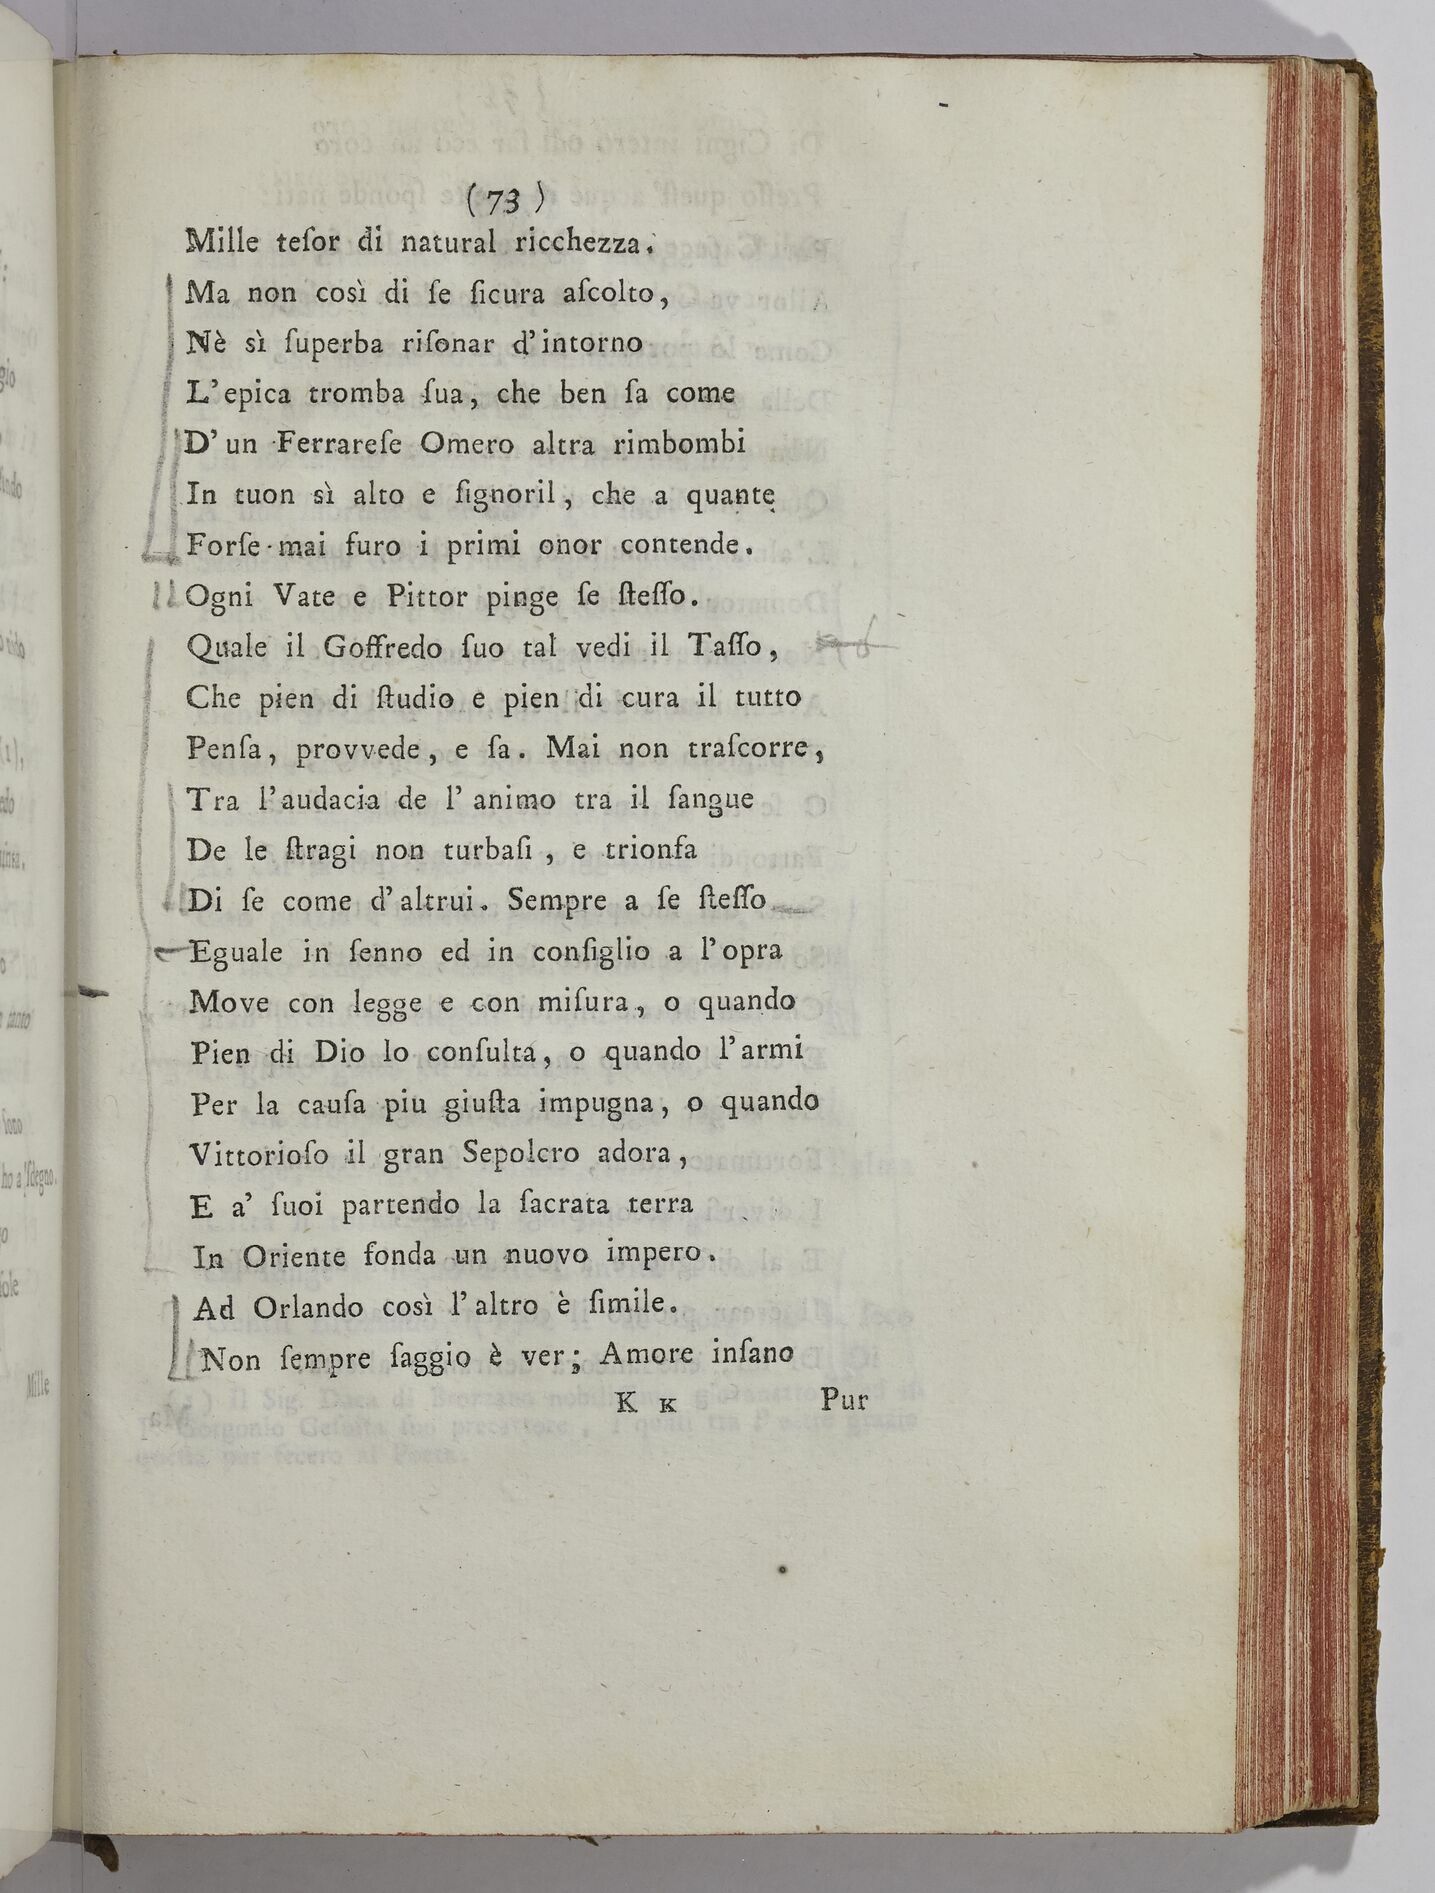 (73)
Mille teſor di natural ricchezza.
Ma non così di ſe ſicura aſcolto,
Nè sì ſuperba riſonar d'intorno
L'epica tromba ſua, che ben ſa come
D'un Ferrareſe Omero altra rimbombi
In tuon sì alto e ſignoril, che a quante
Forſe mai furo i primi onor contende.
Ogni Vate e Pittor pinge ſe ſteſſo.
Quale il Goffredo ſuo tal vedi il Taſſo,
Che pien di ſtudio e pien di cura il tutto
Penſa, provvede, e ſa. Mai non traſcorre,
Tra l'audacia de l'animo tra il ſangue
De le ſtragi non turbaſi, e trionfa
Di ſe come d'altrui. Sempre a ſe ſteſſo
Eguale in ſenno ed in conſiglio a l'opra
Move con legge e con miſura, o quando
Pien di Dio lo conſulta, o quando l'armi
Per la cauſa piu giuſta impugna, o quando
Vittorioſo il gran Sepolcro adora,
E a' ſuoi partendo la ſacrata terra
In Oriente fonda un nuovo impero.
Ad Orlando così l'altro è ſimile.
Non ſempre ſaggio è ver; Amore inſano
K K Pur